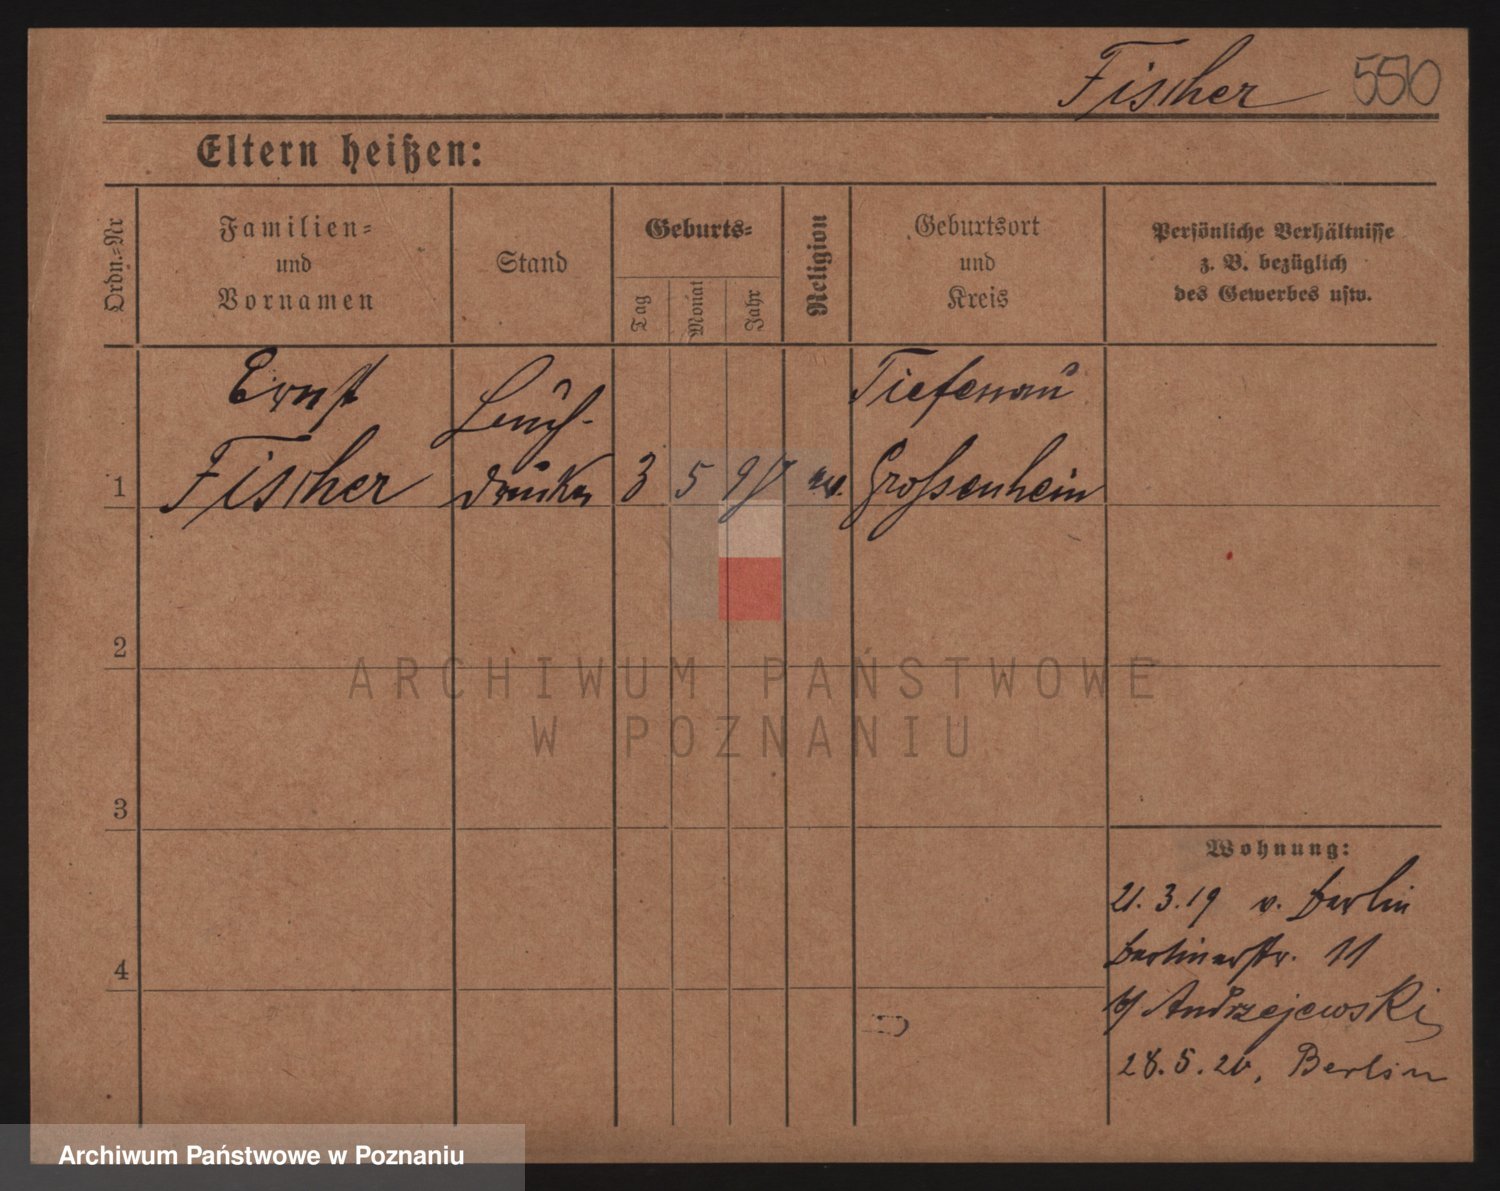 Fischer 5510
Eltern heißen:
Ordn.-Nr
Familien-
und
Vornamen
Stand
Geburts-
Tag
Monat
Jahr
Religion
Geburtsort
und
Kreis
Persönliche Verhältnisse
z. B. bezüglich
des Gewerbes usw.
1
Ernst
Fischer
Buch-
drucker
3
5
97
ev.
Tiefenau
Grossenhein
2
3
4
Wohnung:
21.3.19 v. Berlin
Berlinerstr. 11
b/ Andrzejewski
28.5.20, Berlin
ARCHIWUM PAŃSTWOWE
W POZNANIU
Archiwum Państwowe w Poznaniu